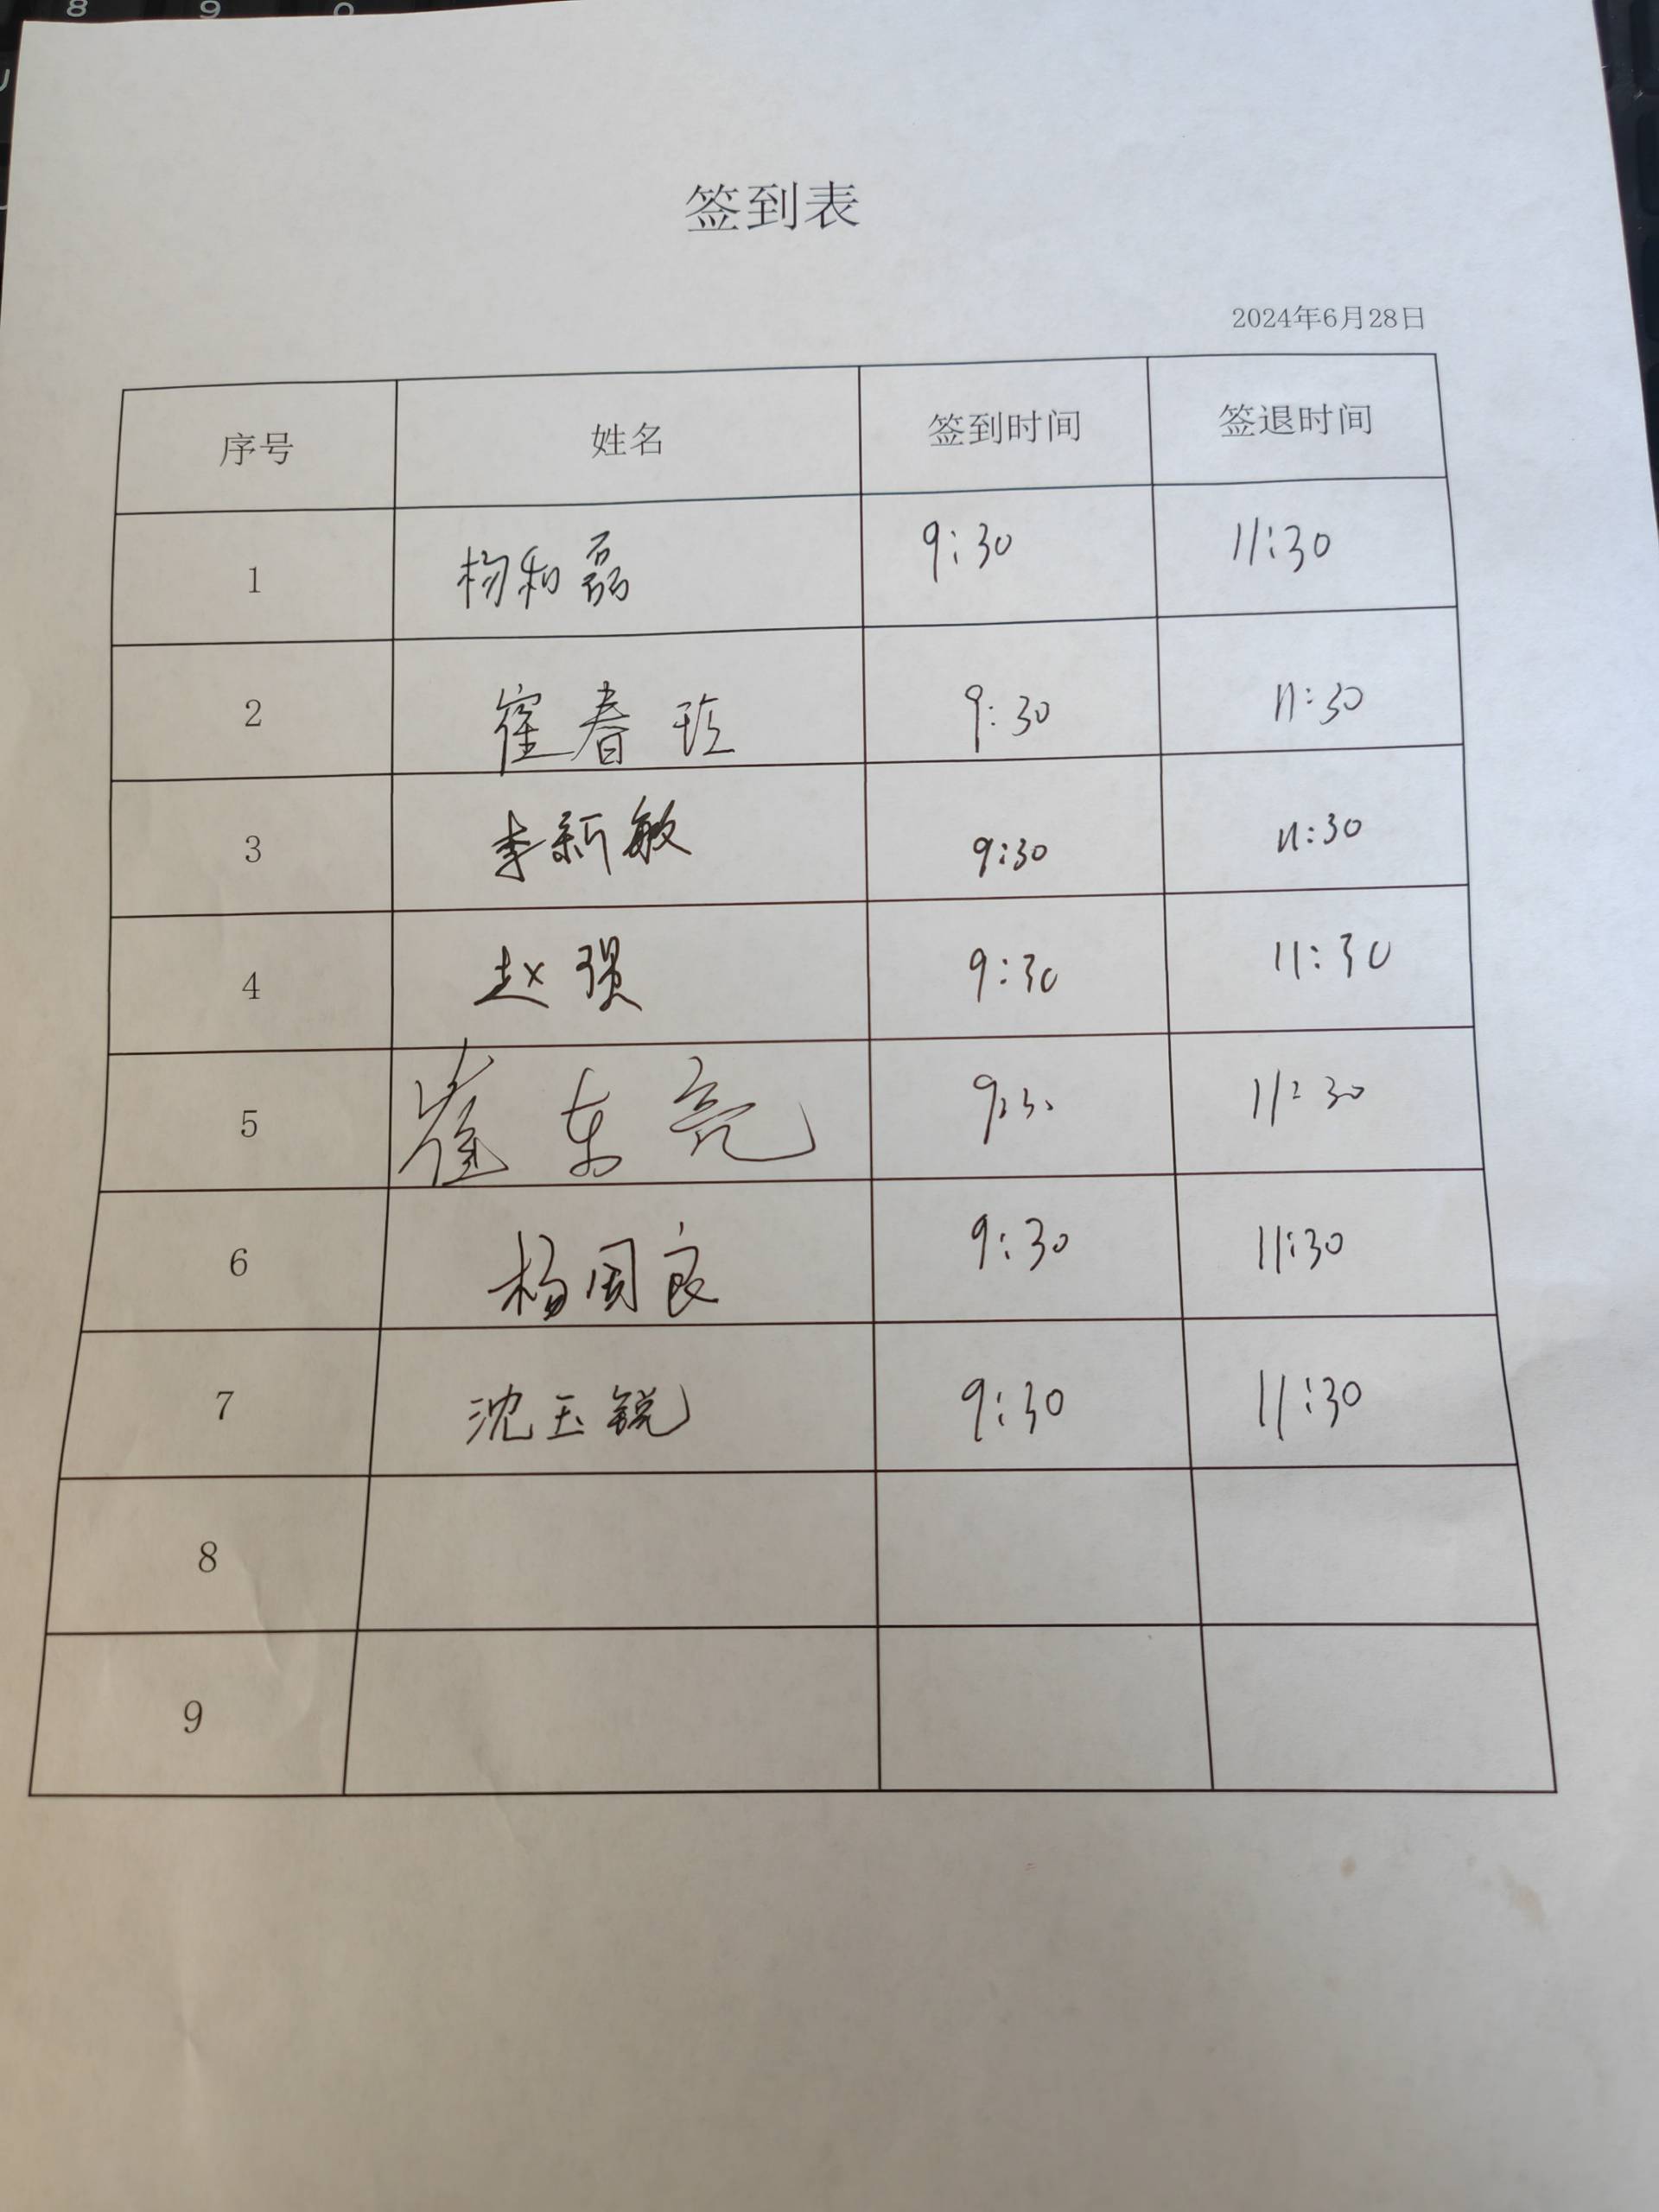 8 9 0
签到表
2024年6月28日
序号 姓名 签到时间 签退时间
1 杨和磊 9:30 11:30
2 崔春玲 9:30 11:30
3 李新敏 9:30 11:30
4 赵强 9:30 11:30
5 崔东亮 9:30 11:30
6 杨国良 9:30 11:30
7 沈玉锐 9:30 11:30
8
9